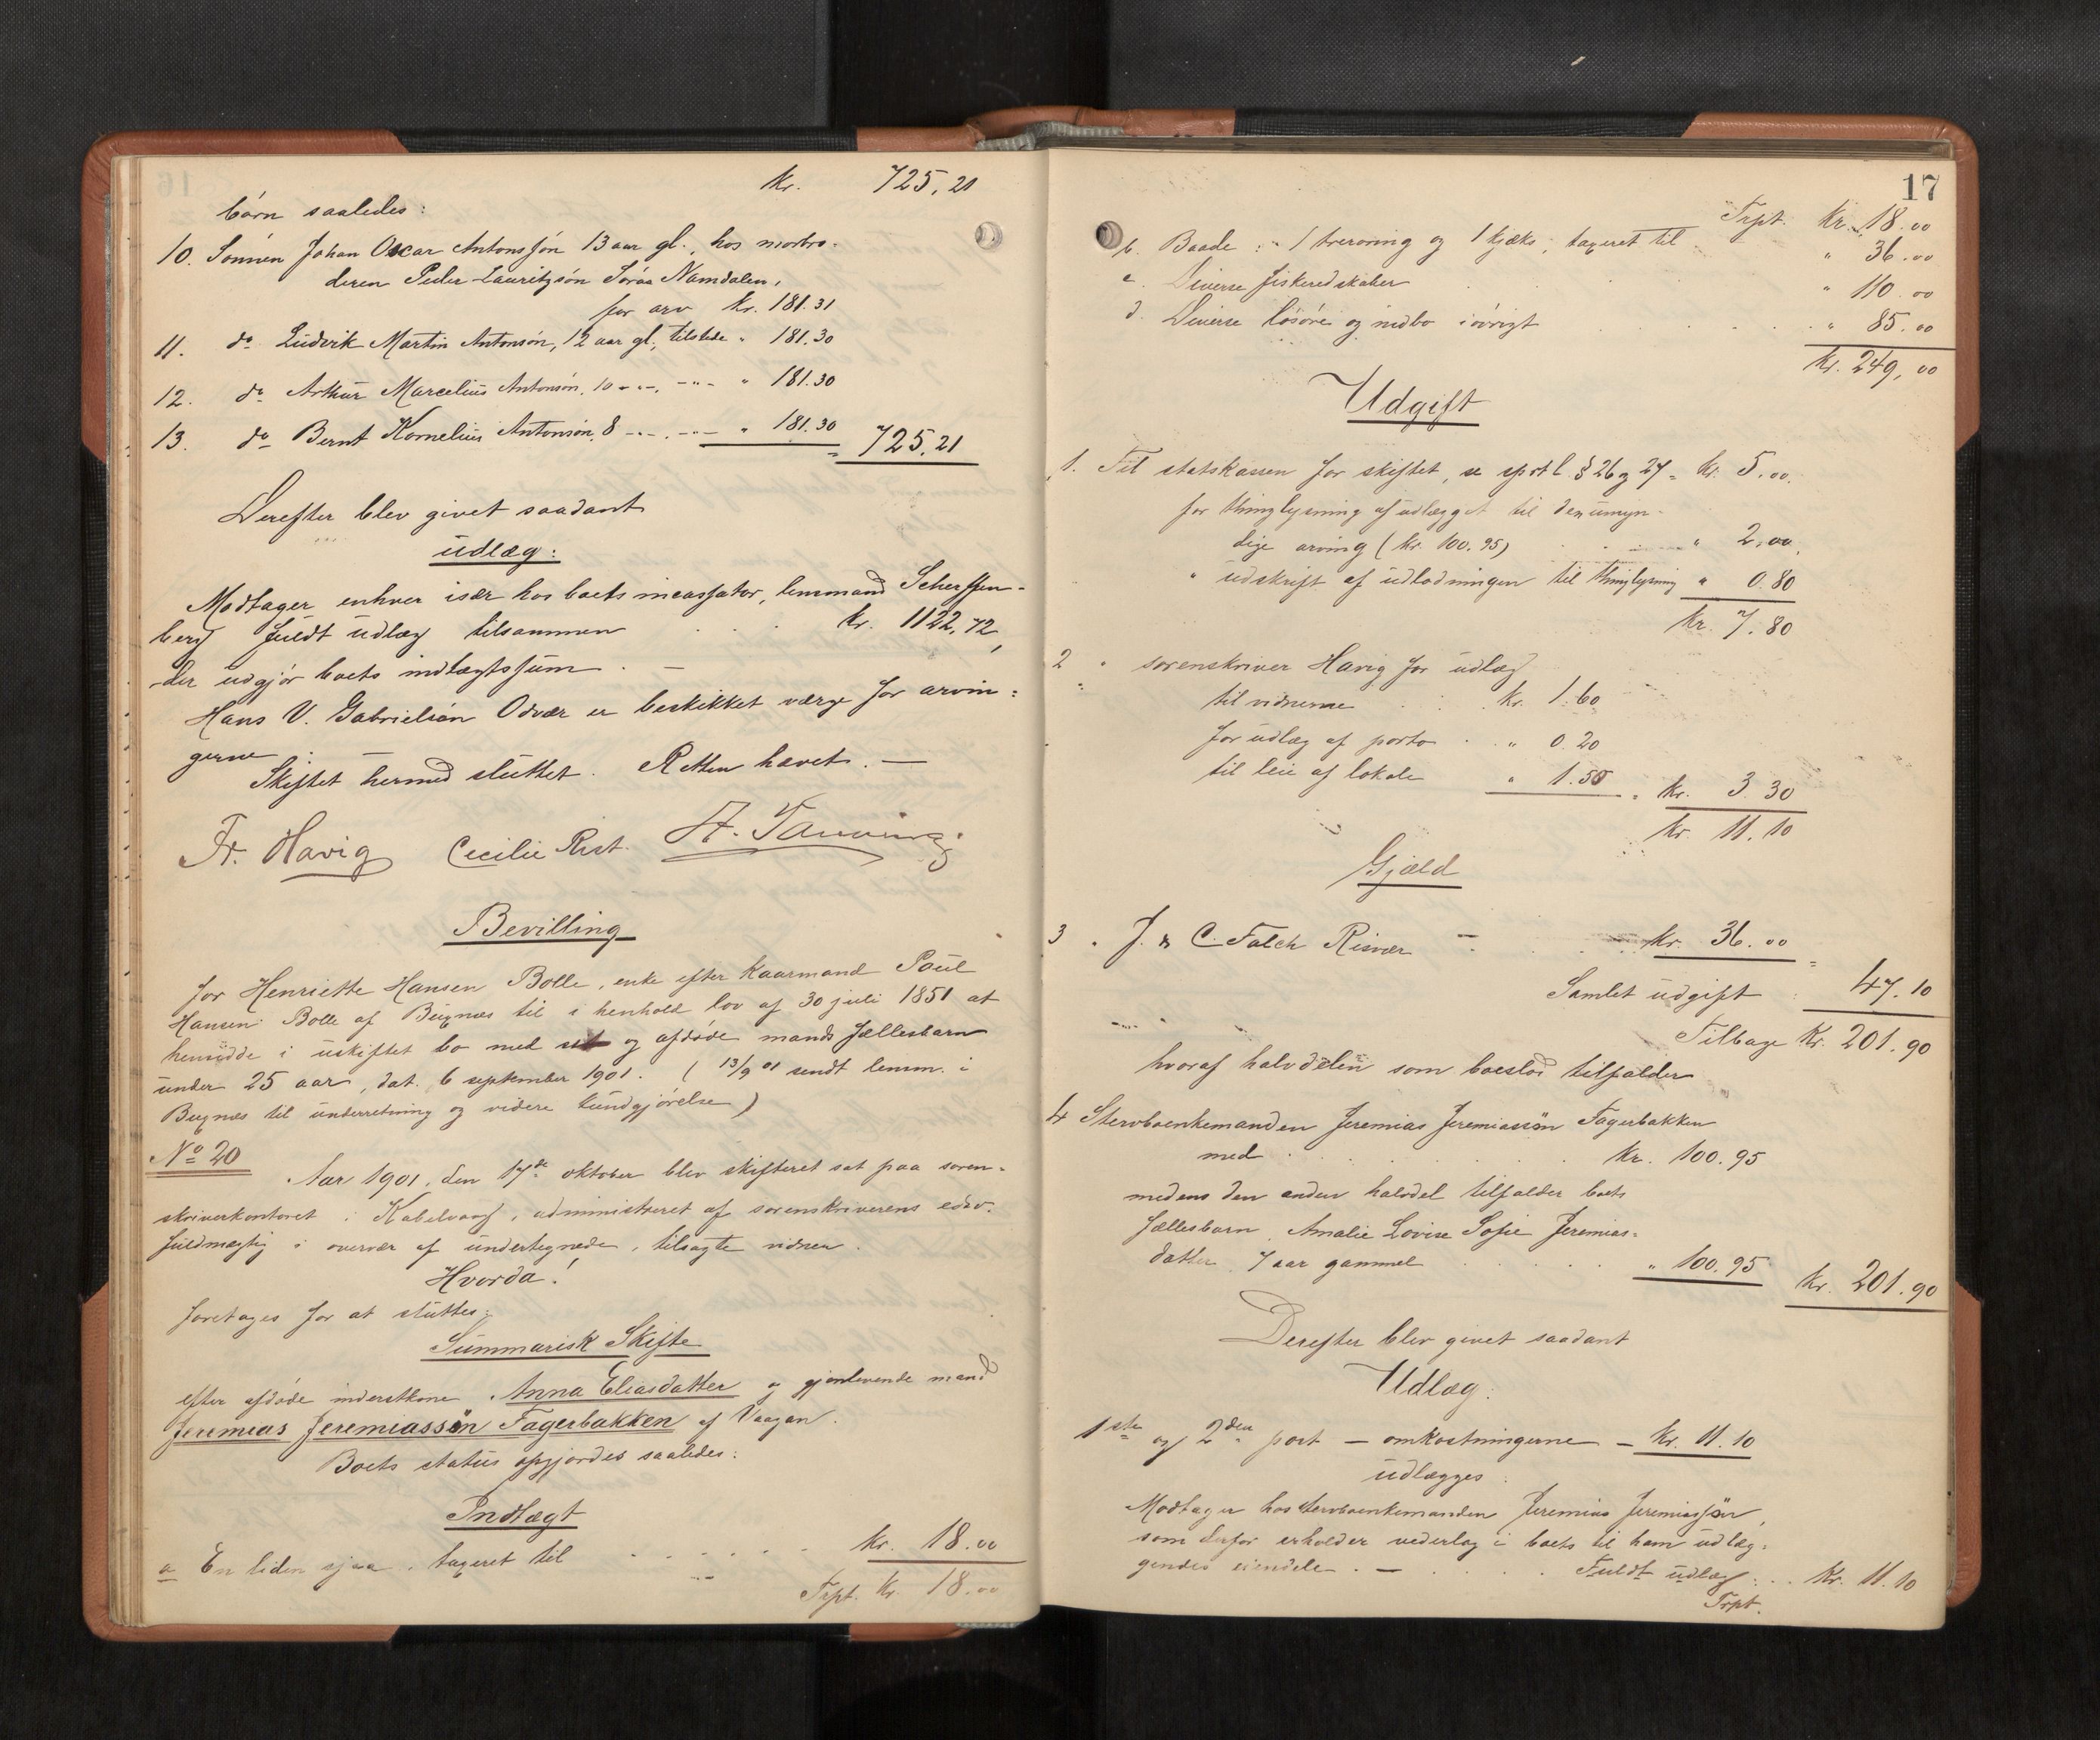 kr. 725,21
børn saaledes:
10. Sønnen Johan Oscar Antonssøn 13 aar gl., hos morbro-
deren Peder Lauritzsøn Søraa Namdalen,
for arv kr. 181.31
11. do Ludvik Martin Antonsøn, 12 aar gl., tilstede " 181.30
12. do Arthur Marcelius Antonsøn, 10 - " -, - " - " 181.30
13. do Bernt Kornelius Antonsøn, 8 - " -, - " - " 181.30 = 725.21
Derefter blev givet saadant
udlæg:
Modtager enhver især hos boets incassator, lensmand Scherffen-
berg fuldt udlæg tilsammen kr. 1122,72,
der udgjør boets indtægtssum. —
Hans V. Gabrielsøn Odvær er beskikket værge for arvin-
gerne. —
Skiftet hermed sluttet. Retten hævet. —
Fr. Havig Cecilie Rist. A.
Bevilling
for Henriette Hansen Bolle, enke efter kaarmand Poul
Hansen Bolle af Buxnæs til i henhold lov af 30 juli 1851 at
hensidde i uskiftet bo med sit og afdøde mands fællesbarn
under 25 aar, dat. 6 september 1901. ( 13/9 01 sendt lensm. i
Buxnæs til underretning og videre kundgjørelse)
No 20
Aar 1901, den 17de oktober blev skifteret sat paa soren-
skriverkontoret i Kabelvaag, administreret af sorenskriverens edsv.
fuldmægtig i overvær af undertegnede, tilsagte vidner.
Hvorda!
foretages for at sluttes:
Summarisk Skifte
efter afdøde inderstkone Anna Eliasdatter og gjenlevende mand
Jeremias Jeremiassøn Fagerbakken af Vaagan.
Boets status opgjordes saaledes:
Indtægt
a En liden sjaa, taxeret til kr. 18.00
Trpt. Kr. 18.00
17
Trpt. Kr. 18.00
b. Baade: - 1 treroring og 1 kjæks, taxeret til " 36.00
c. Diverse fiskeredskaber " 110.00
d. Diverse løsøre og indbo iøvrigt " 85.00
kr. 249,00
Udgift
1. Til statskassen for skiftet, se sprtl. § 26 og 27 = kr. 5.00.
for thinglysning af udlægget til den umyn-
dige arving (kr. 100.95) " 2,00,
" udskrift af udlodningen til thinglysning " 0.80
kr. 7.80
2 " sorenskriver Havig for udlæg
til vidnerne kr. 1.60
for udlæg af porto " 0.20
til leie af lokale " 1.50 = kr. 3.30
kr. 11.10
Gjæld
3 . J. & C. Falch Risvær — kr. 36.00 =
Samlet udgift : 47.10
Tilbage Kr. 201.90
hvoraf halvdelen som boeslod tilfalder
4 Stervboenkemanden Jeremias Jeremiassøn Fagerbakken
med kr. 100.95
medens den anden halvdel tilfalder boets
fællesbarn, Amalie Lovise Sofie Jeremias-
datter 7 aar gammel " 100.95 kr. 201.90
Derefter blev givet saadant
Udlæg.
1ste og 2den post — omkostningerne — Kr. 11.10
udlægges:
Modtager hos stervboenkemanden Jeremias Jeremiassøn,
som derfor erholder vederlag i boets til ham udlæg-
gendes eiendele. — Fuldt udlæg: .. Kr. 11.10
Trpt.